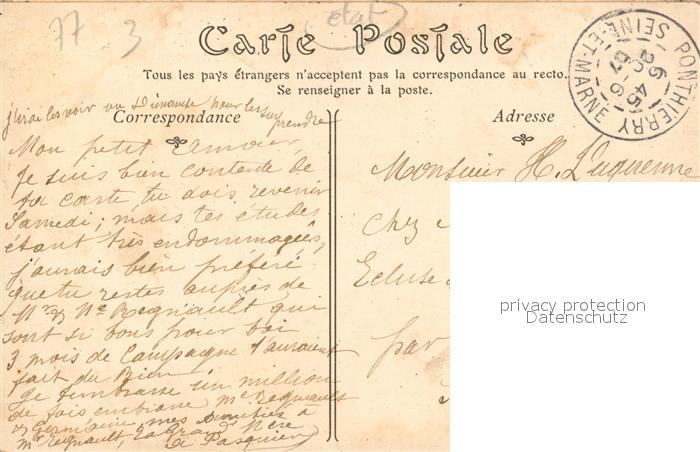 77 3 état
Carte Postale
Tous les pays étrangers n'acceptent pas la correspondance au recto.
Se renseigner à la poste.
PONTHIERRY
SEINE-ET-MARNE
6 45
20-6
07
j'irai les voir un Dimanche pour les surprendre
Correspondance
Adresse
Mon petit amour,
Je suis bien contente de
ta carte, tu dois revenir
Samedi; mais tes études
étant très endommagées,
j'aurais bien préféré
que tu restes auprès de
Mr & Me Regnault qui
sont si bons pour toi
3 mois de Campagne t'auraient
fait du Bien
Je t'embrasse un million
de fois embrasse Me Regnault
& Germaine, mes amitiés à
Mr Regnault, ta Grand Mère
Pasquier
Monsieur H. Luquenne
Chez
Ecluse
par
privacy protection
Datenschutz